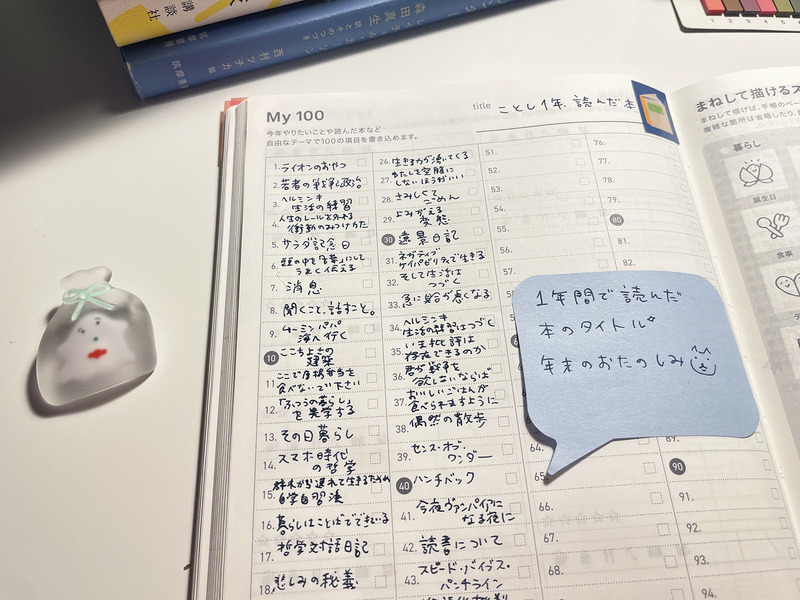 講談社
森田真生
西村ツチカ 絵
筑摩書房
My 100
title ことし1年、読んだ本
今年やりたいことや読んだ本など
自由なテーマで100の項目を書き込めます。
1. ライオンのおやつ
2. 若者の戦争と政治。
3. ヘルシンキ
生活の練習
4. 人生のレールを外れる
衝動のみつけかた
5. サラダ記念日
6. 頭の中を言葉にして
うまく伝える
7. 消息
8. 聞くこと、話すこと。
9. ムーミンパパ
海へ行く
10 ここちよさの
建築
11. ここで唐揚弁当を
食べないで下さい
12. 「ふつうの暮らし」
を美学する
13. その日暮らし
14. スマホ時代
の哲学
15. 群れから逸れて生きるための
自学自習法
16. 暮らしはことばでできている
17. 哲学対話日記
18. 悲しみの秘義
26. 生きる力が湧いてくる
27. わたしを空腹に
しないほうがいい
28. さみしくて
ごめん
29. よみがえる
変態
30 遠景日記
31. ネガティヴ・
ケイパビリティで生きる
32. そして生活は
つづく
33. 急に具合が悪くなる
34. ヘルシンキ
生活の練習はつづく
35. いま批評は
存在できるのか
36. 君が戦争を
欲しないならば
37. おいしいごはんが
食べられますように
38. 偶然の散歩
39. センス・オブ・
ワンダー
40 ハンチバック
41. 今夜ヴァンパイアに
なる前に
42. 読書について
43. スピード・バイブス・
パンチライン
51.
52.
53.
54.
55.
56.
57.
65.
66.
67.
68.
76.
77.
78.
79.
80
81.
82.
89.
90
91.
92.
93.
94.
1年間で読んだ
本のタイトル
年末のおたのしみ
まねして描けるス
まねして描けば、手帳のペー
複雑な箇所は省略したり、
暮らし
誕生日
食事